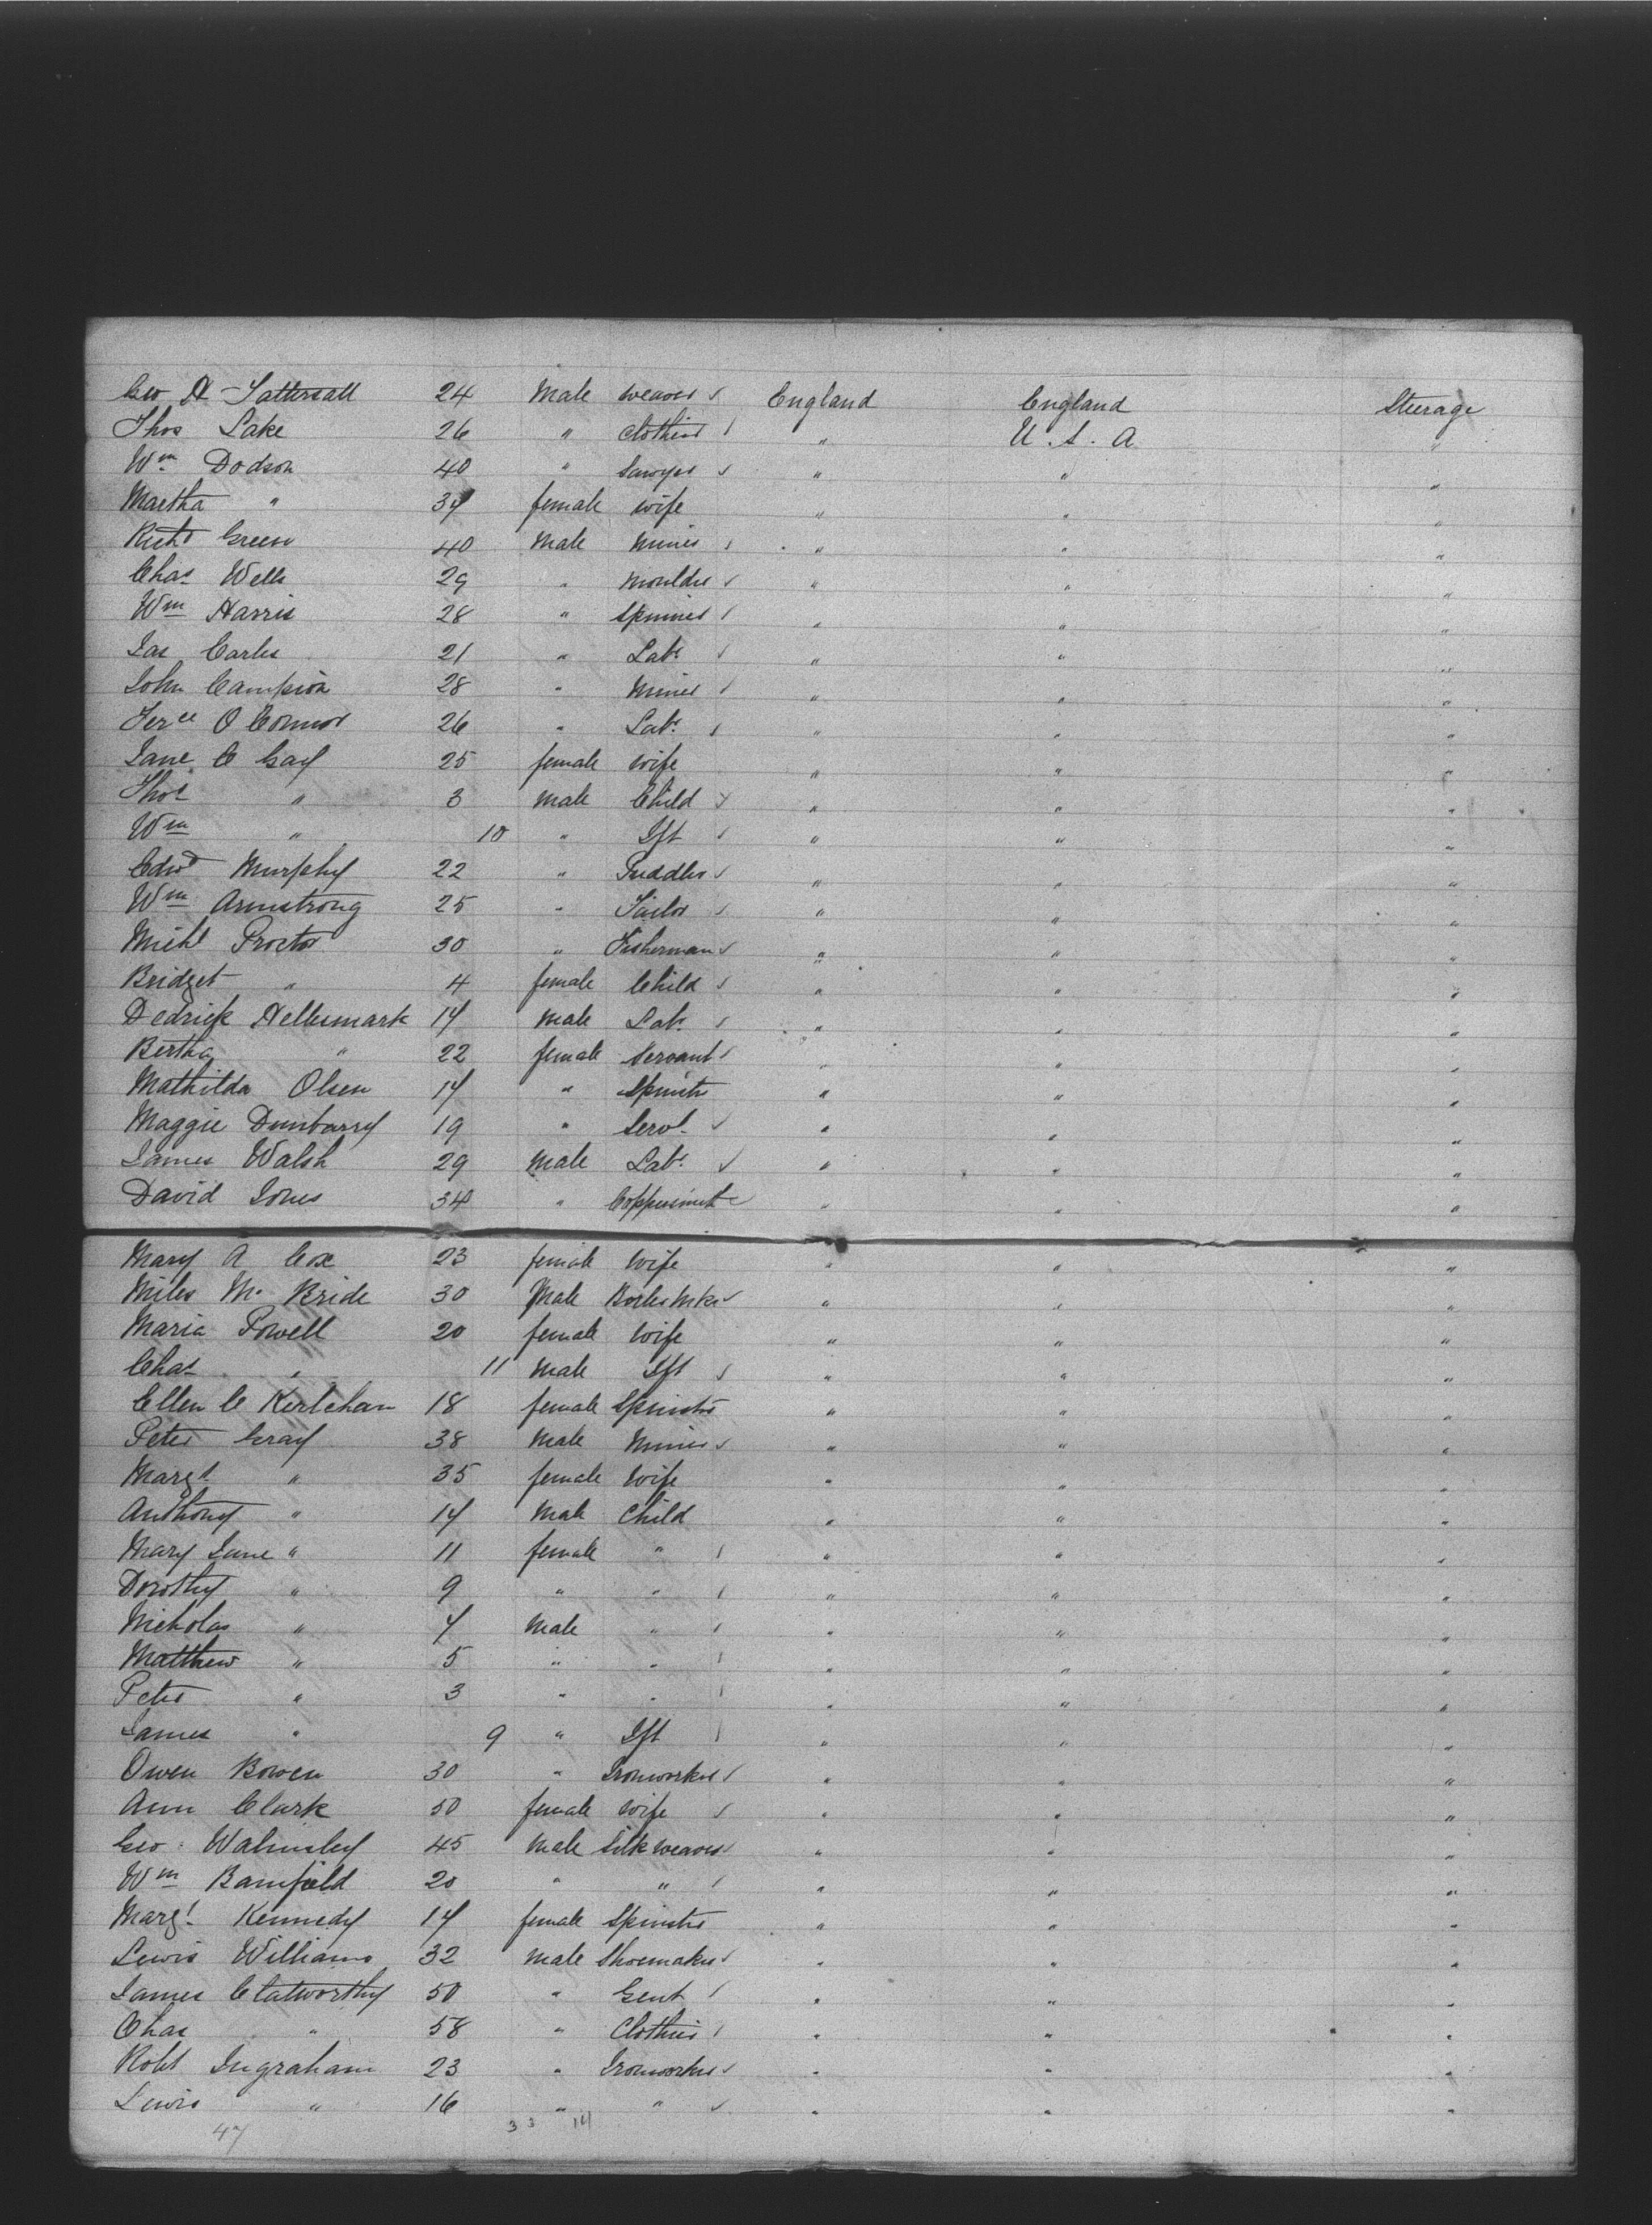 Geo H Tattersall 24 Male weaver England England Steerage
Thos Lake 26 " Clothier " U.S.A "
Wm Dodson 40 " Sawyer " " "
Martha " 37 female wife " " "
Richd Green 40 Male Miner " " "
Chas Wells 29 " Moulder " " "
Wm Harris 28 " Spinner " " "
Jas Carles 21 " Labr " " "
John Campion 28 " Miner " " "
Terce O Connor 26 " Labr " " "
Jane C Gay 25 female wife " " "
Thos " 3 male Child " " "
Wm " 10 " Ift " " "
Edwd Murphy 22 " Puddler " " "
Wm Armstrong 25 " Tailor " " "
Michl Proctor 30 " Fisherman " " "
Bridget " 4 female Child " " "
Dedrick Hellesmark 17 male Labr " " "
Bertha " 22 female Servant " " "
Mathilda Olsen 17 " Spinstr " " "
Maggie Dunbarry 19 " Servt " " "
James Walsh 29 male Labr " " "
David Jones 34 " Coppersmith " " "
Mary A Cox 23 female Wife " " "
Miles Mc Bride 30 Male Boilermkr " " "
Maria Powell 20 female Wife " " "
Chas " 11 male Ift " " "
Ellen C 18 female Spinster " " "
Peter Gray 38 Male Miner " " "
Margt " 35 female Wife " " "
Anthony " 14 Male Child " " "
Mary Jane " 11 female " " " "
Dorothy " 9 " " " " "
Nicholas " 7 Male " " " "
Matthew " 5 " " " " "
Peter " 3 " " " " "
James " 9 " Ift " " "
Owen Bowen 30 " Ironworker " " "
Ann Clark 50 female Wife " " "
Geo Walmsley 45 male Silk weaver " " "
Wm Bamfield 20 " " " " "
Margt Kennedy 17 female Spinster " " "
Lewis Williams 32 male Shoemaker " " "
James Clatworthy 50 " Gent " " "
Chas " 58 " Clothier " " "
Robt Ingraham 23 " Ironworker " " "
Lewis " 16 " " " " "
47 33 14